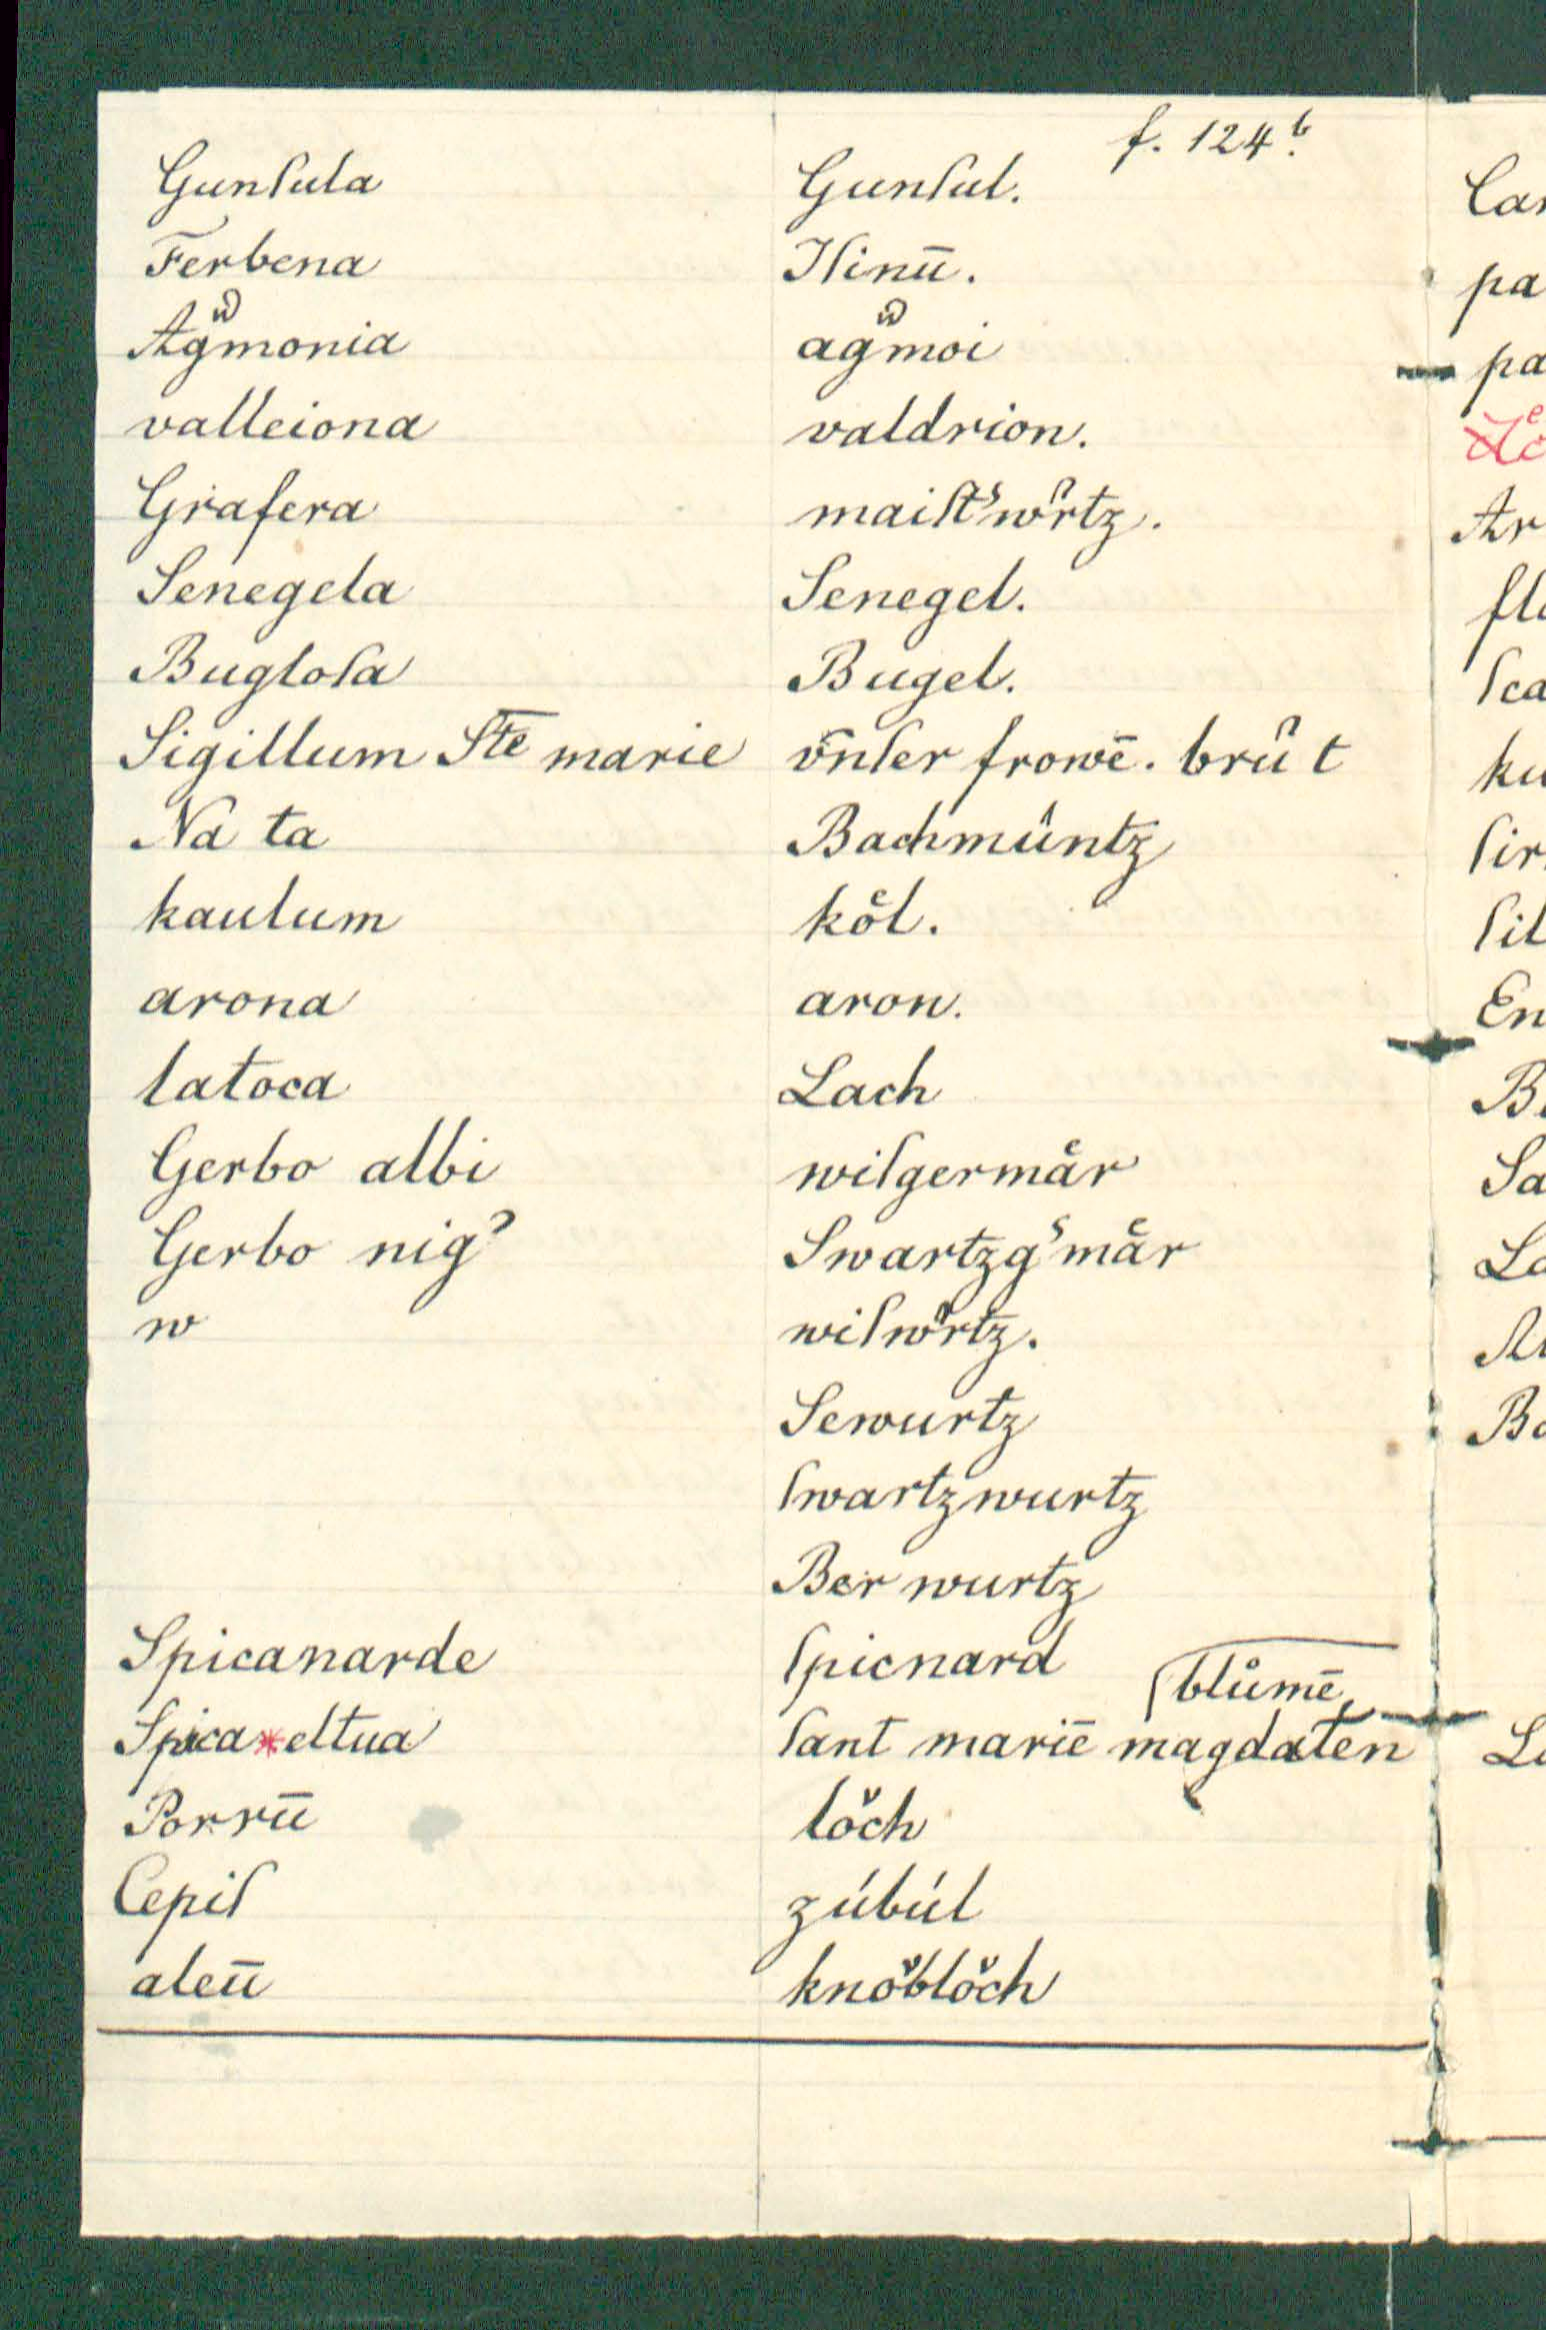 f. 124b.
Gunſula Gunſul.
Ferbena Iſinū.
Agmonia agmoi
valleiona valdrion.
Grafera maiſt'wrtz.
Senegela Senegel.
Bugloſa Bugel.
Sigillum Ste marie vnſer frowē. brut
Na ta Bachmüntz
kaulum kol.
arona aron.
latoca Lach
Gerbo albi wiſgermår
Gerbo nig' Swartzg'mår
w wiſwrtz.
Sewurtz
ſwartzwurtz
Ber wurtz
Spicanarde ſpicnard
blůmē
Spica*eltua ſant mariē magdalen
Porrū loch
Cepiſ zúbúl
aleū knobloch
Ca
pa
pa
Ar
fl
ſca
ku
ſir
ſil
En
B
Sa
La
Ba